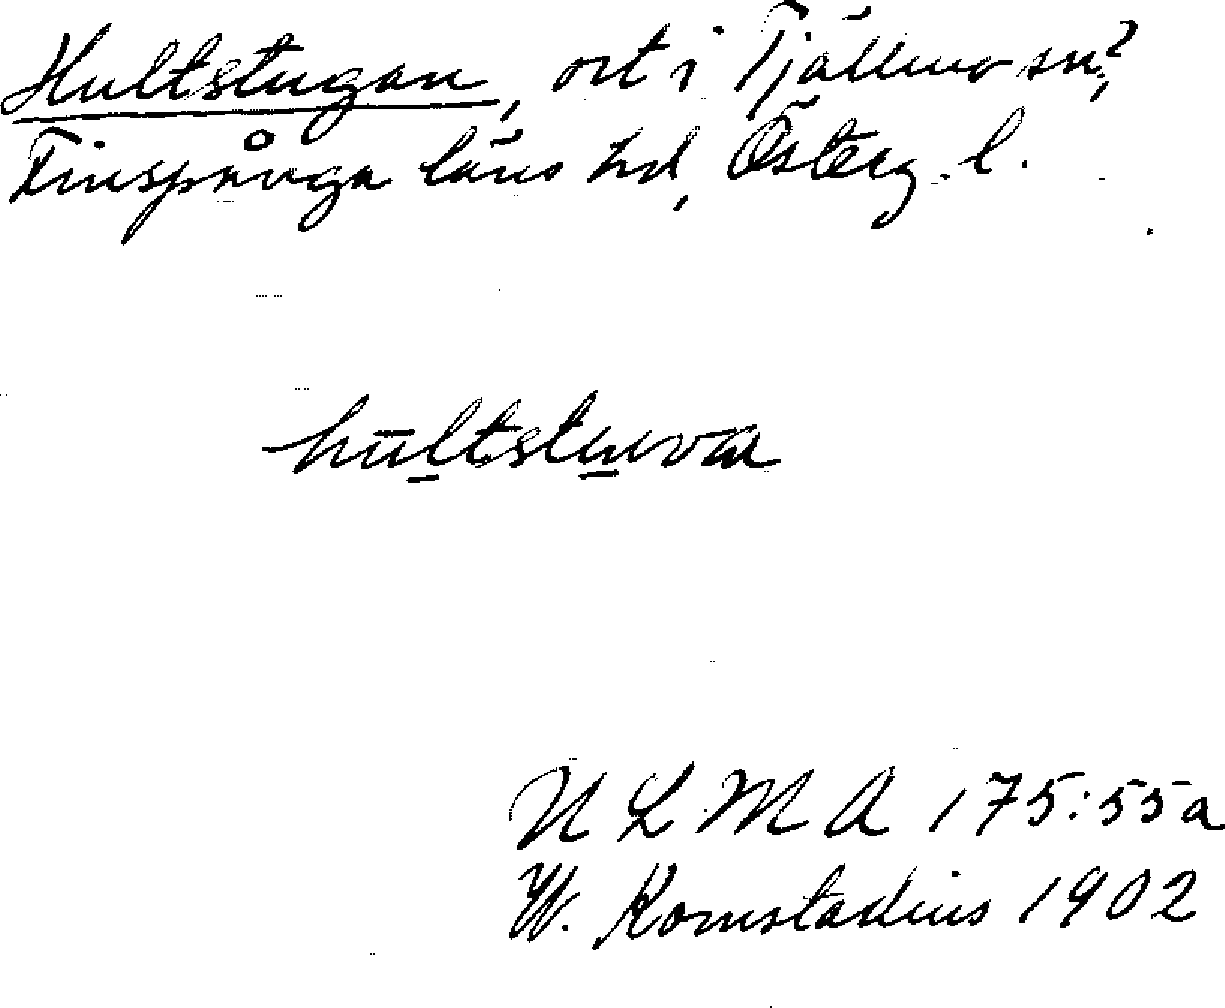 Hultstugan, ort i Tjällmo sn?,
Finspånga läns hd, Österg. l.
hultstuva
ULMA 175:55a
W. Komstadius 1902